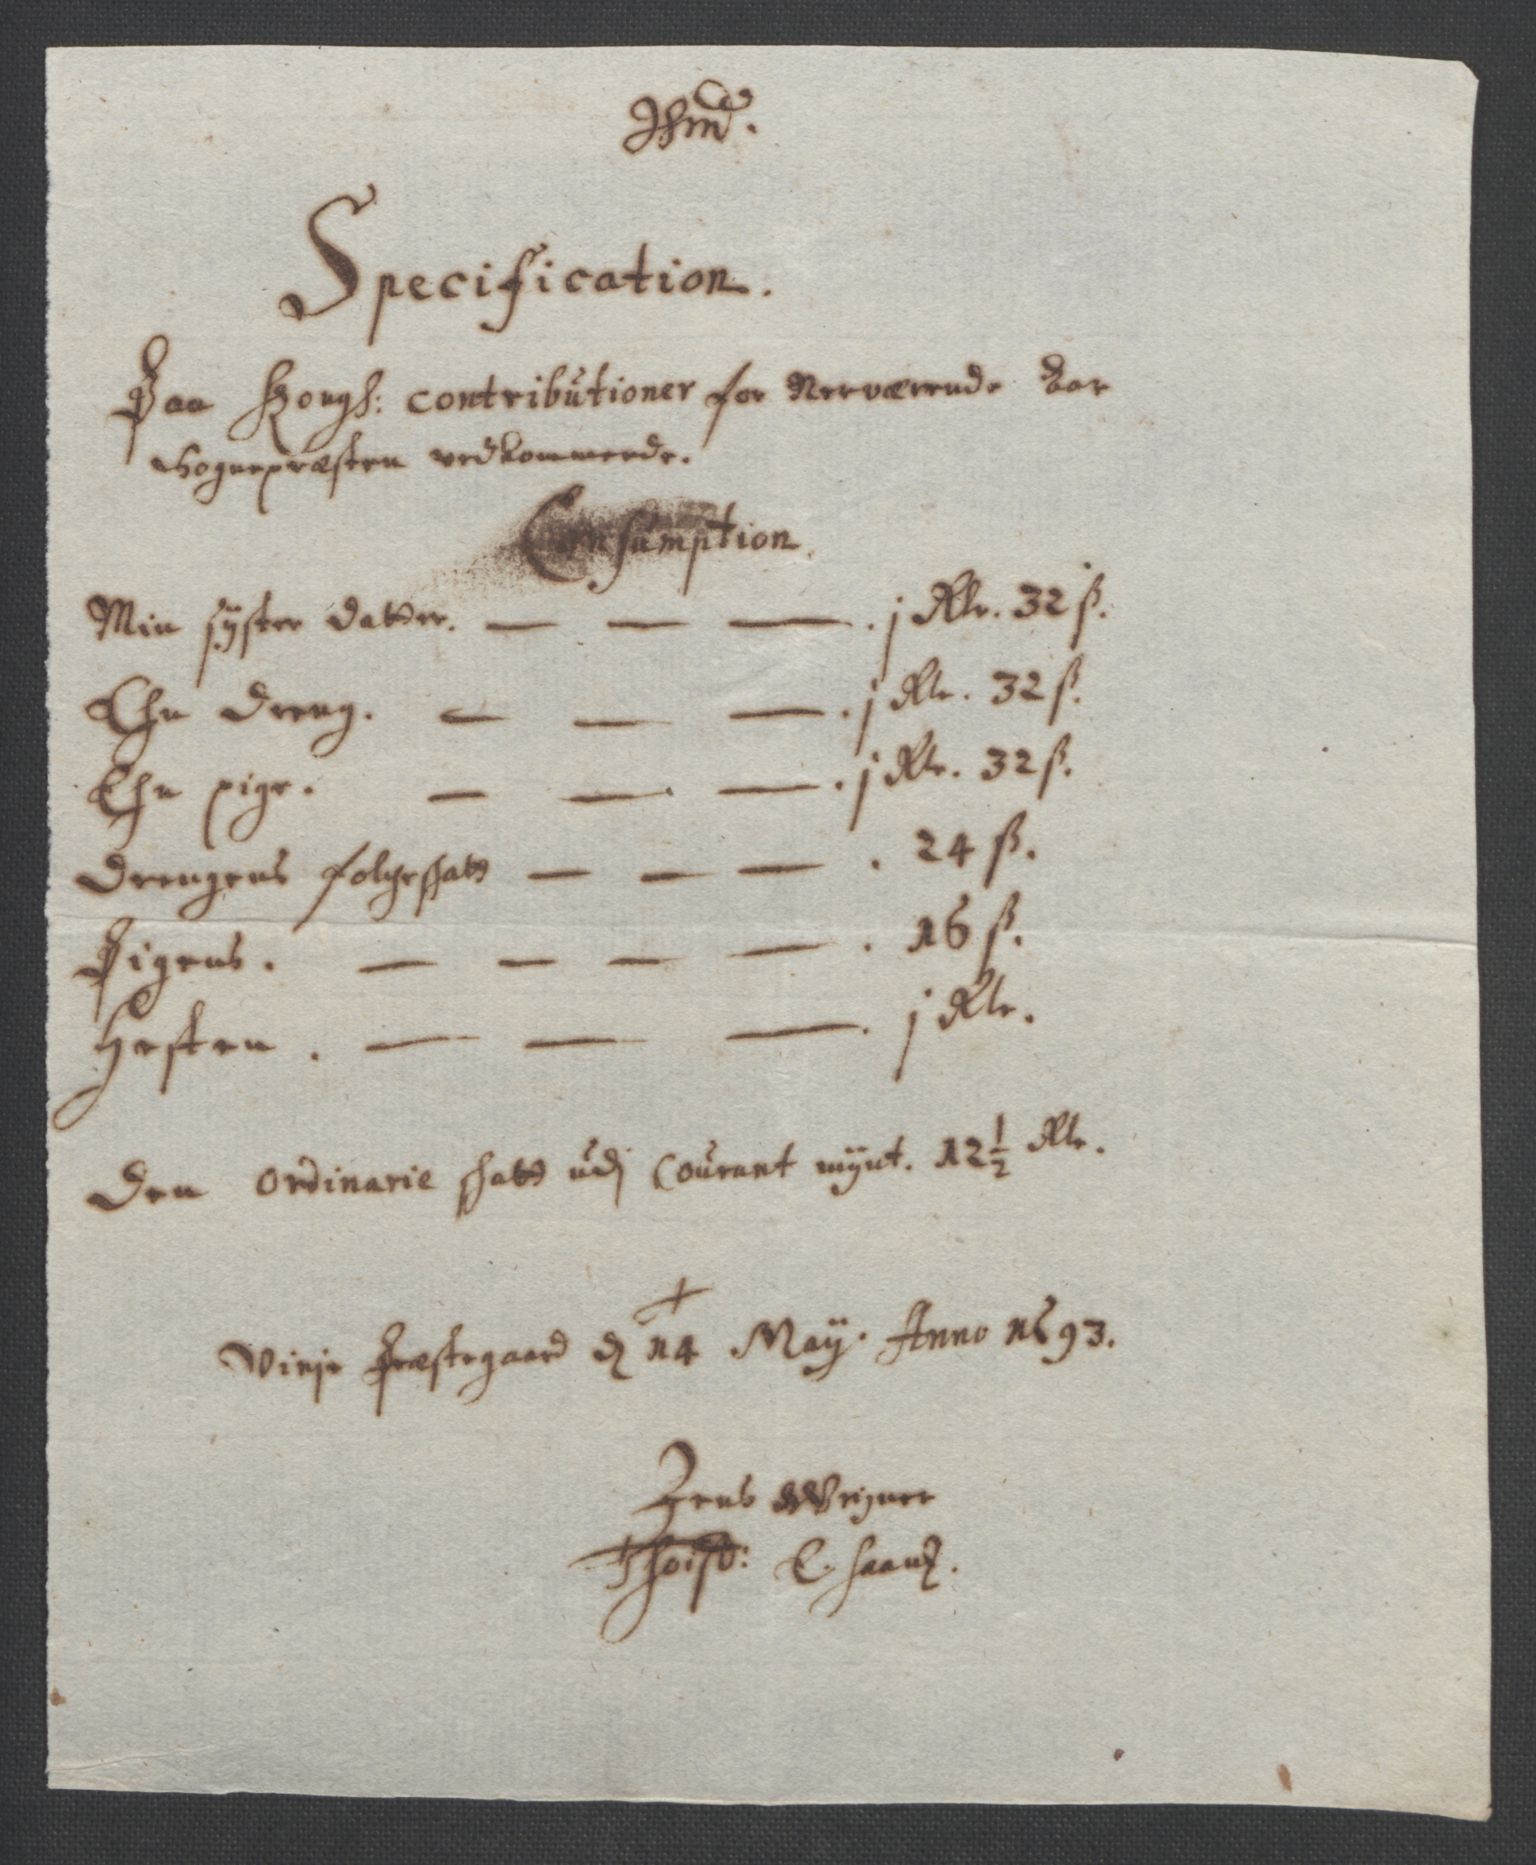 Specification.
Paa Kongl: contributioner for Nerværende Aar
Sognepræsten vedkommende.
Consumption
Min syster datter. — — — . j Rlr. 32 ß.
Ehn dreng. — — — . j Rlr. 32 ß.
Ehn pige. — — — . j Rlr. 32 ß.
Drengens folcheskatt — — — . 24 ß.
Pigens. — — — — . 16 ß.
Hesten. — — — . j Rlr.
Den ordinarie skatt udj Courant mÿnt. 12½ Rlr.
Vinje Præstegaard d 14 Maÿ. Anno 1693.
Jens